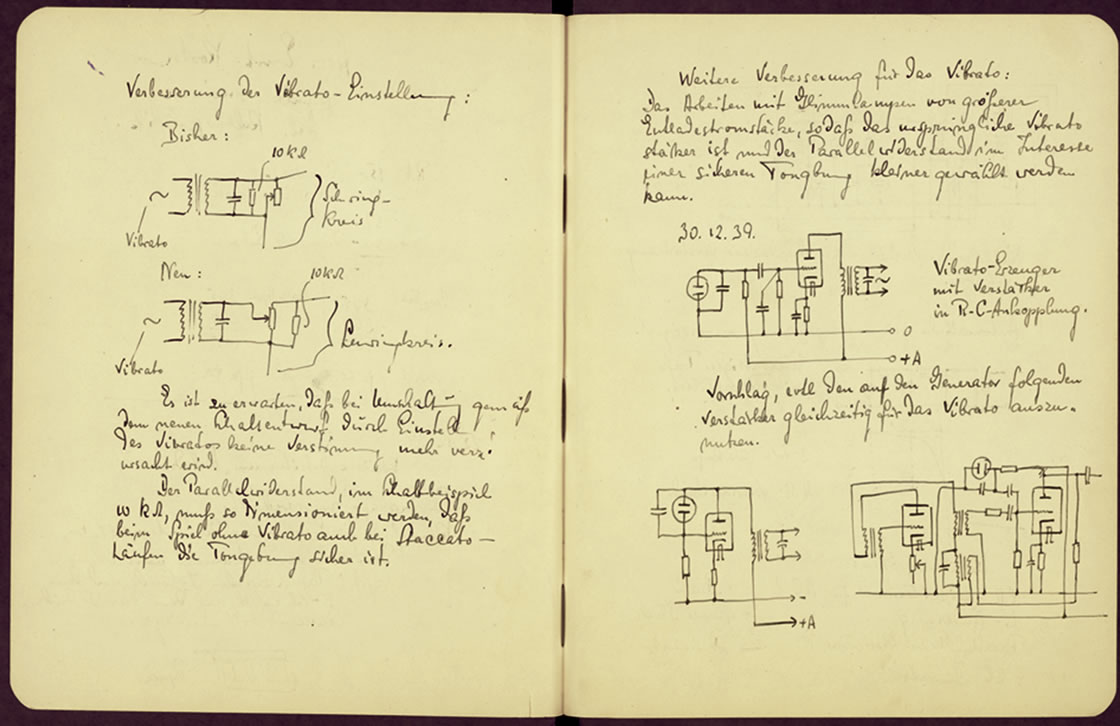 Verbesserung der Vibrato-Einstellung:
Bisher:
10 kΩ
Schwing-
kreis
Vibrato
Neu:
10 kΩ
Schwingkreis.
Vibrato
Es ist zu erwarten, daß bei Umschaltung gemäß
dem neuen Schaltentwurf durch Einstell
des Vibratos keine Verstimmung mehr verur-
ursacht wird.
Der Parallelwiderstand, im Schaltbeispiel
10 kΩ, muß so dimensioniert werden, daß
beim Spiel ohne Vibrato auch bei Staccato-
Läufen die Tongebung sicher ist.
Weitere Verbesserung für das Vibrato:
Das Arbeiten mit Glimmlampen von größerer
Entladestromstärke, sodaß das ursprüngliche Vibrato
stärker ist und der Parallelwiderstand im Interesse
einer sicheren Tongbung kleiner gewählt werden
kann.
30.12.39.
Vibrato-Erzeuger
mit Verstärker
in R-C-Ankopplung.
0
+A
Vorschlag, den auf den Generator folgenden
Verstärker gleichzeitig für das Vibrato auszu-
nutzen.
-
+A